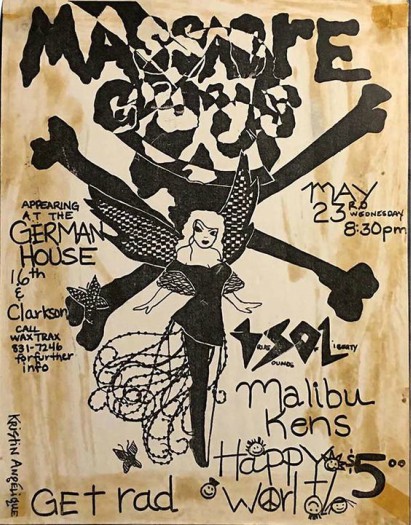 MASSACRE
GUYS
APPEARING
AT THE
GERMAN
HOUSE
16th
&
Clarkson
CALL
WAXTRAX
831-7246
for further
info
MAY
23RD WEDNESDAY
8:30pm
TSOL
TRUE SOUNDS OF LIBERTY
Malibu
Kens
Happy
World
$5.00
GET rad
KRISTIN ANGELIQUE